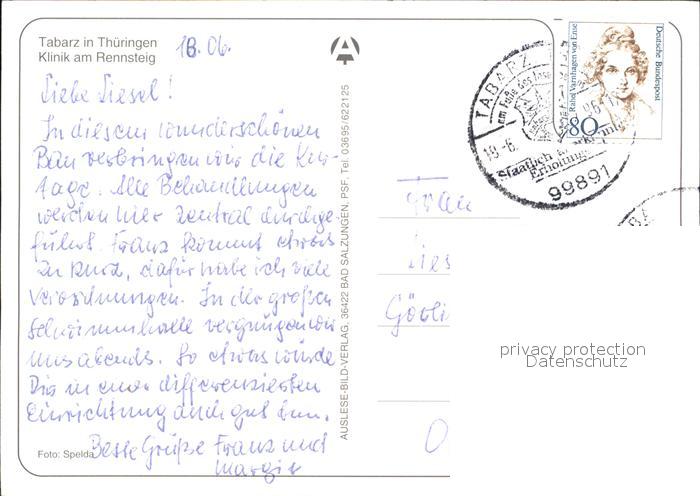 Tabarz in Thüringen
Klinik am Rennsteig
18.06.
Liebe Liesel!
In diesem wunderschönen
Bau verbringen wir die Kur-
tage. Alle Behandlungen
werden hier zentral durchge-
führt. Franz kommt etwas
zu kurz, dafür habe ich viele
Verordnungen. In der großen
Schwimmhalle vergnügen wir
uns abends. So etwas würde
Dir in einer differenzierten
Einrichtung auch gut tun.
Beste Grüße Franz und
Margit
Foto: Spelda
AUSLESE-BILD-VERLAG, 36422 BAD SALZUNGEN, PSF, Tel. 03695/622125
TABARZ
am Fuße des Inselsbergs
Staatlich anerkannter
Erholungsort
99891
80
Rahel Varnhagen von Ense
Deutsche Bundespost
Lies
Görli
privacy protection
Datenschutz